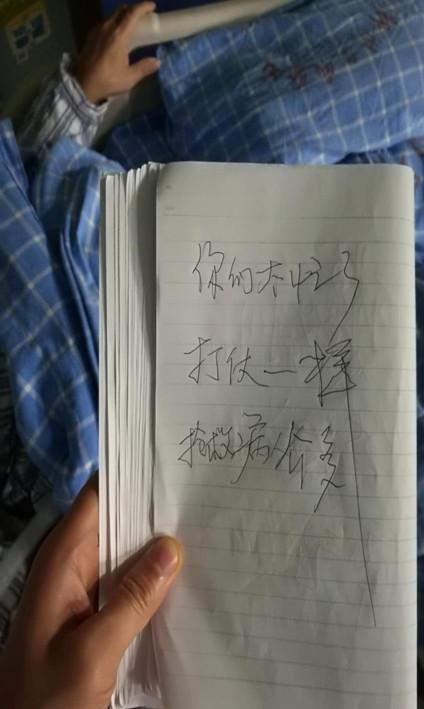 你们太忙了
打仗一样
抢救病人多